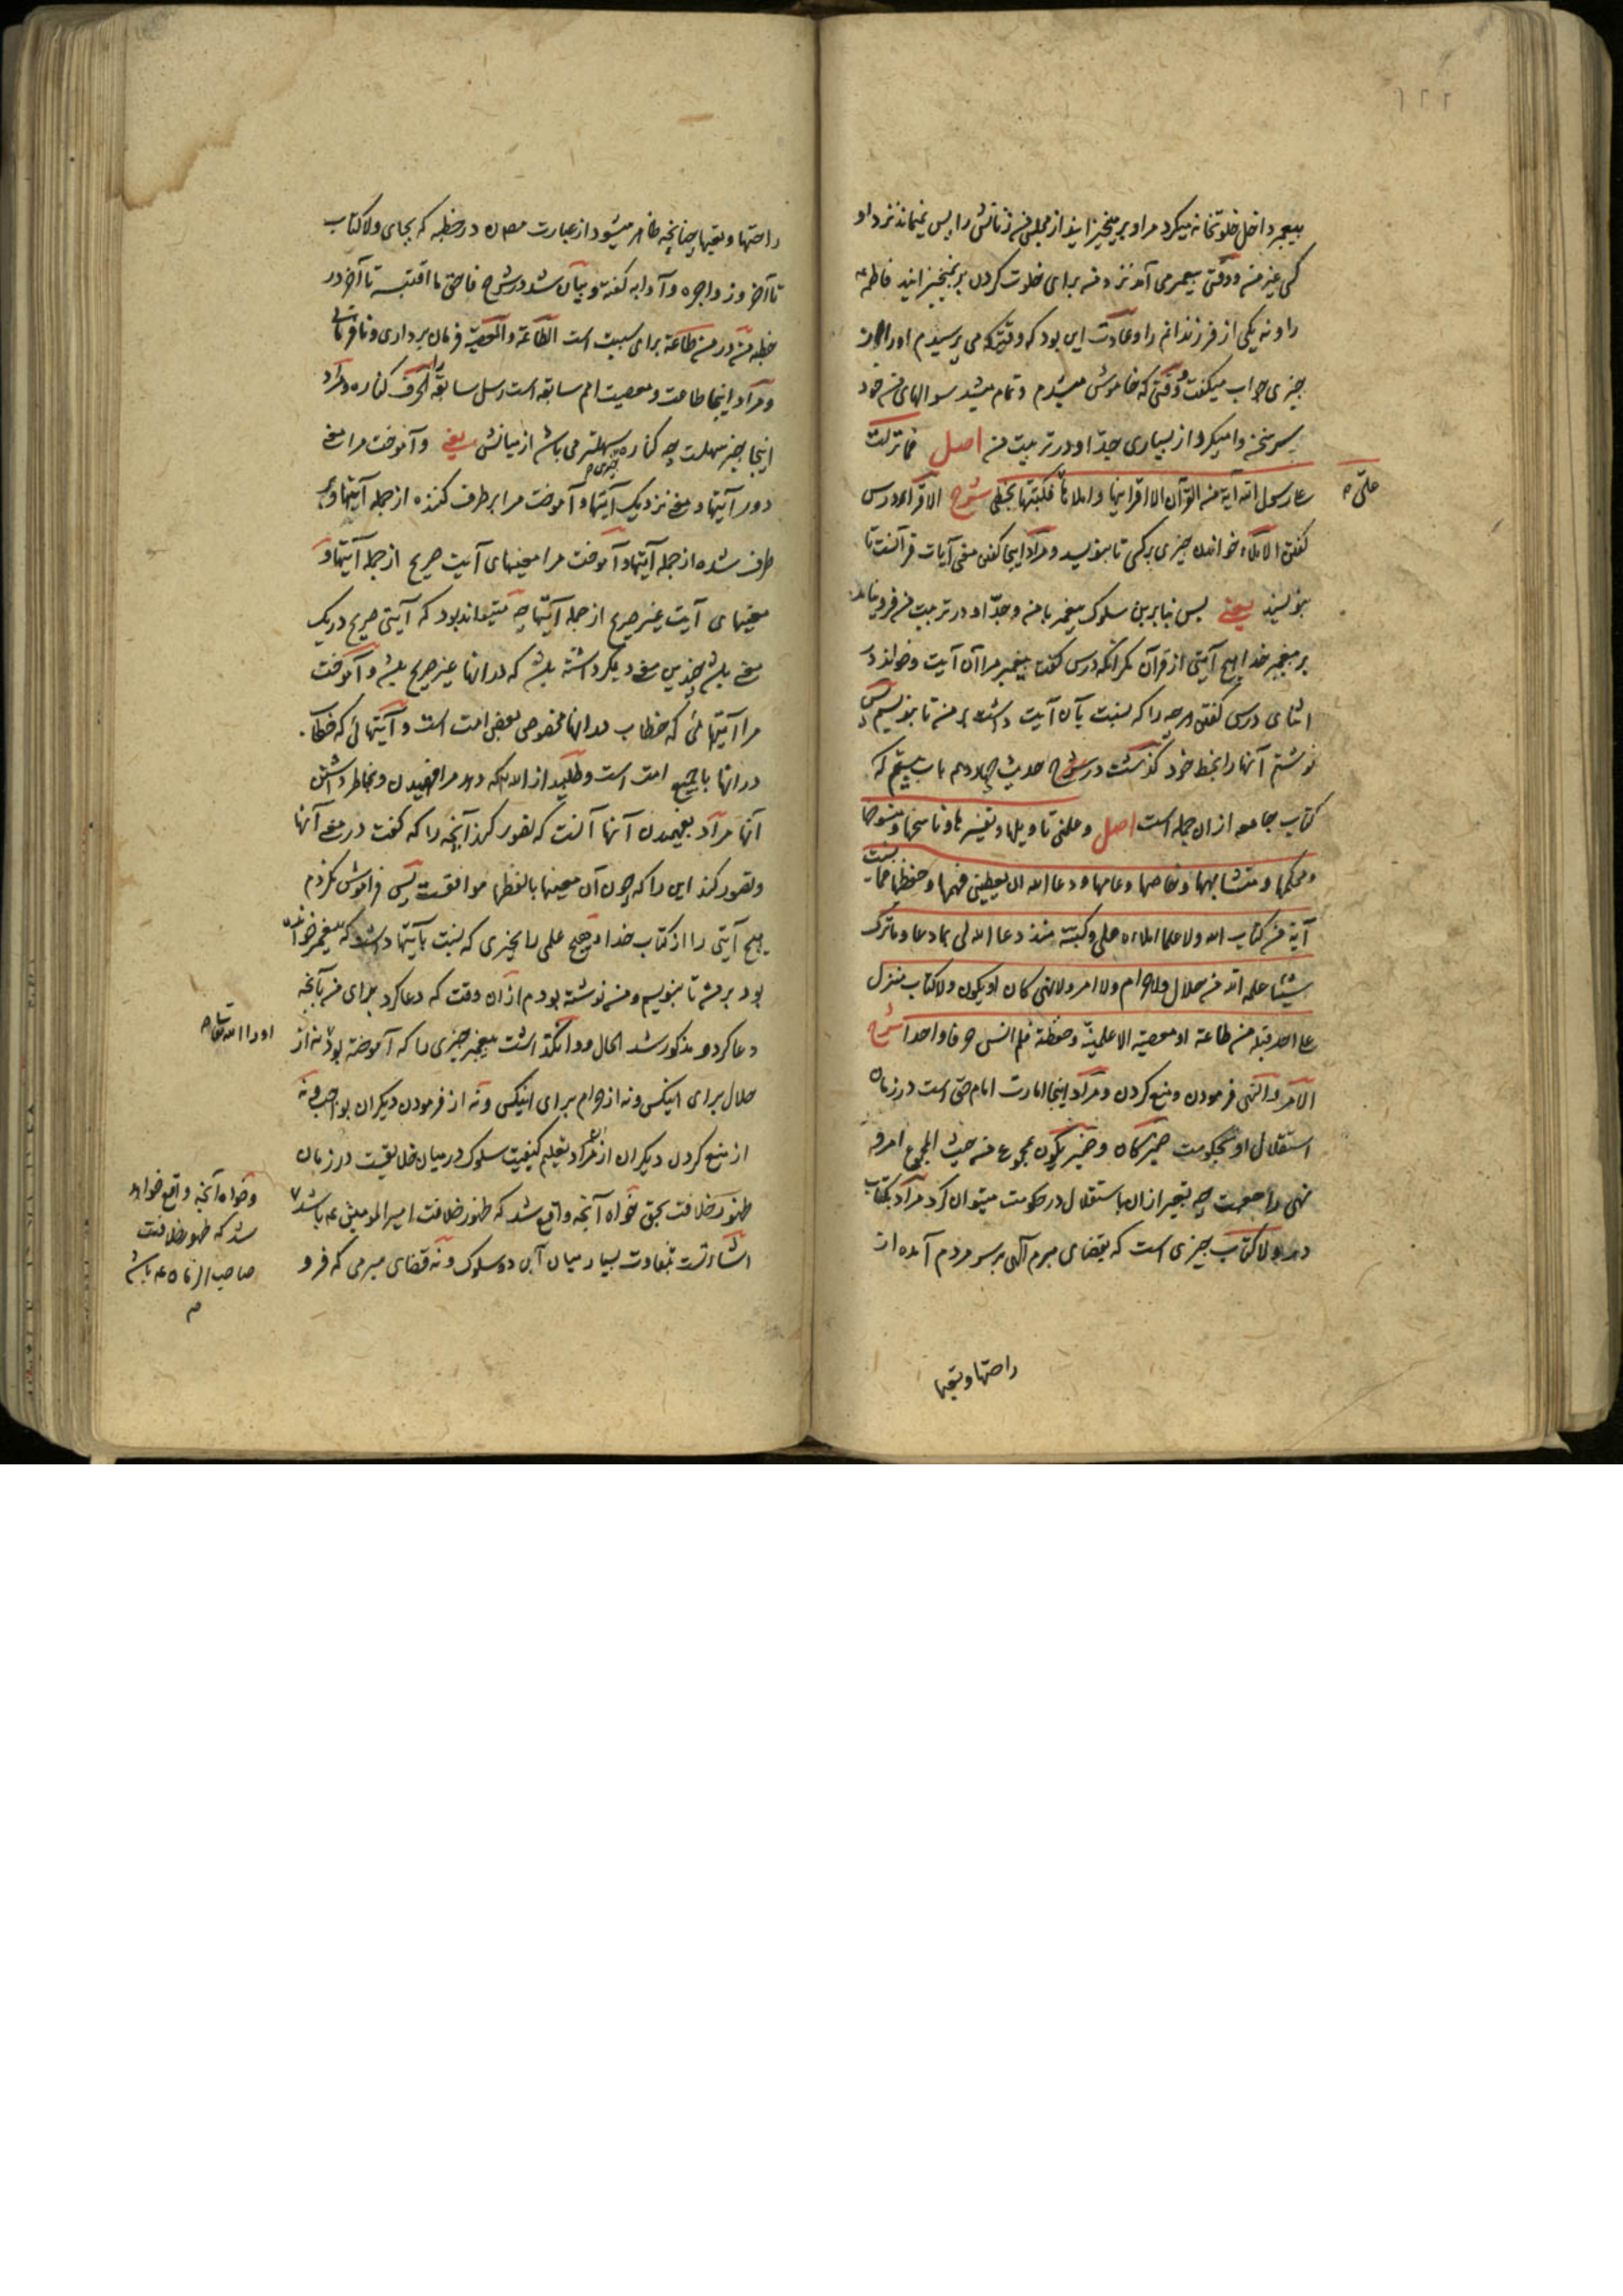 پیغمبر داخل خلوتخانه میکرد مرا و برمیخیزانید از مجلس من زنانش را پس نمیماند نزد او
کسی غیر من و وقتی پیغمبر می آمد نزد من برای خلوت کردن برنمیخیزانید فاطمه
را و نه یکی از فرزندانم را و عادت این بود که وقتی که می پرسیدم او را
چیزی جواب میگفت و وقتی که خاموش میشدم و تمام میشد سوالهای من خود
سر سخن وامیکرد از بسیاری جد او در تربیت من اصل فما نزلت
علی رسول الله آیة من القرآن الا اقرأنیها و املاها علیّ فکتبتها بخطی شرح الاقراء درس
گفتن الاملاء خواندن چیزی بر کسی تا بنویسد و مراد اینجا گفتن معنی آیات قرآنست تا
بنویسد یعنی پس بنابرین سلوک پیغمبر با من و جد او در تربیت من فرو نیامد
بر پیغمبر خدا هیچ آیتی از قرآن مگر آنکه درس گفت پیغمبر مرا آن آیت و خواند در
اثنای درس گفتن هر چه را که نسبت بآن آیت داشت بر من تا بنویسم پس
نوشتم آنها را بخط خود گذشت در شرح حدیث چهاردهم باب بیستم که
کتاب جامعه ازان جمله است اصل و علمنی تاویلها و تفسیرها و ناسخها و منسوخها
و محکمها و متشابهها و خاصها و عامها و دعا الله ان یعطینی فهمها و حفظها فما نسیت
آیة من کتاب الله ولا علما املاه علی و کتبته منذ دعا الله لی بما دعا و ما ترک
شیئا علمه الله من حلال ولا حرام ولا امر ولا نهی کان او یکون ولا کتاب منزل
علی احد قبله من طاعة او معصیة الا علمنیه و حفظته فلم انس حرفا واحدا شرح
الامر و النهی فرمودن و منع کردن و مراد اینجا امارت امام حق است در زمان
استقلال او بحکومت ضمیر کان و ضمیر یکون بمجموع من حیث المجموع امر و
نهی راجعست چه تعبیر ازان باستقلال در حکومت میتوان کرد مراد بکتاب
در ولا کتاب چیزی است که بقضای مبرم آلهی بر سر مردم آمده از
راحتها و تعبها
راحتها و تعبها چنانچه ظاهر میشود از عبارت مصنف در خطبه که بجای ولا کتاب
تا آخر و زواجره و آدابه گفته و بیان شد در شرح
خطبه من در من طاعة برای سببیت است الطاعة و المعصیة فرمان برداری و نافرمانی
و مراد اینجا طاعت و معصیت امم سابقه است رسل سابقه را الحرف کناره و مراد
اینجا چیز سهلست چه کناره چیزی سهلتر می باشد از میانش یعنی و آموخت مرا معنی
دور آیتها و معنی نزدیک آیتها و آموخت مرا بر طرف کننده از جمله آیتها و بر
طرف شده از جمله آیتها و آموخت مرا معنیهای آیت صریح از جمله آیتها و
معنیهای آیت غیر صریح از جمله آیتها چه میتواند بود که آیتی صریح در یک
معنی باشد و چندین معنی دیگر داشته باشد که در آنها غیر صریح باشد و آموخت
مرا آیتهائی که خطاب در آنها مخصوص بعض امت است و آیتهائی که خطاب
در آنها با جمیع امت است و طلبید از الله که دهد مرا فهمیدن و بخاطر داشتن
آنها مراد بفهمیدن آنها آنست که تصور کند آنچه را که گفت در معنی آنها
و تصور کند این را که چون آن معنیها با لفظها موافقست پس فراموش نکردم
هیچ آیتی را از کتاب خدا و هیچ علمی را بچیزی که نسبت بآیتها داشت که پیغمبر خوانده
بود بر من تا بنویسم و من نوشته بودم ازان وقت که دعا کرد برای من بآنچه
دعا کرد و مذکور شد الحال و وانگذاشت پیغمبر چیزی را که آموخته بود نه از
او را الله تعالی
حلال برای اینکس و نه از حرام برای اینکس و نه از فرمودن دیگران بواجب و نه
از منع کردن دیگران از حرام مراد تعلیم کیفیت سلوک در میان خلایقست در زمان
ظهور خلافت بحق خواه آنچه واقع شد که ظهور خلافت امیر المومنین ع باشد
و خواه آنچه واقع خواهد
شد که ظهور خلافت
صاحب الزمان ع باشد
اشارتست بتفاوت بسیار میان آن دو سلوک و نه قضای مبرمی که فرو